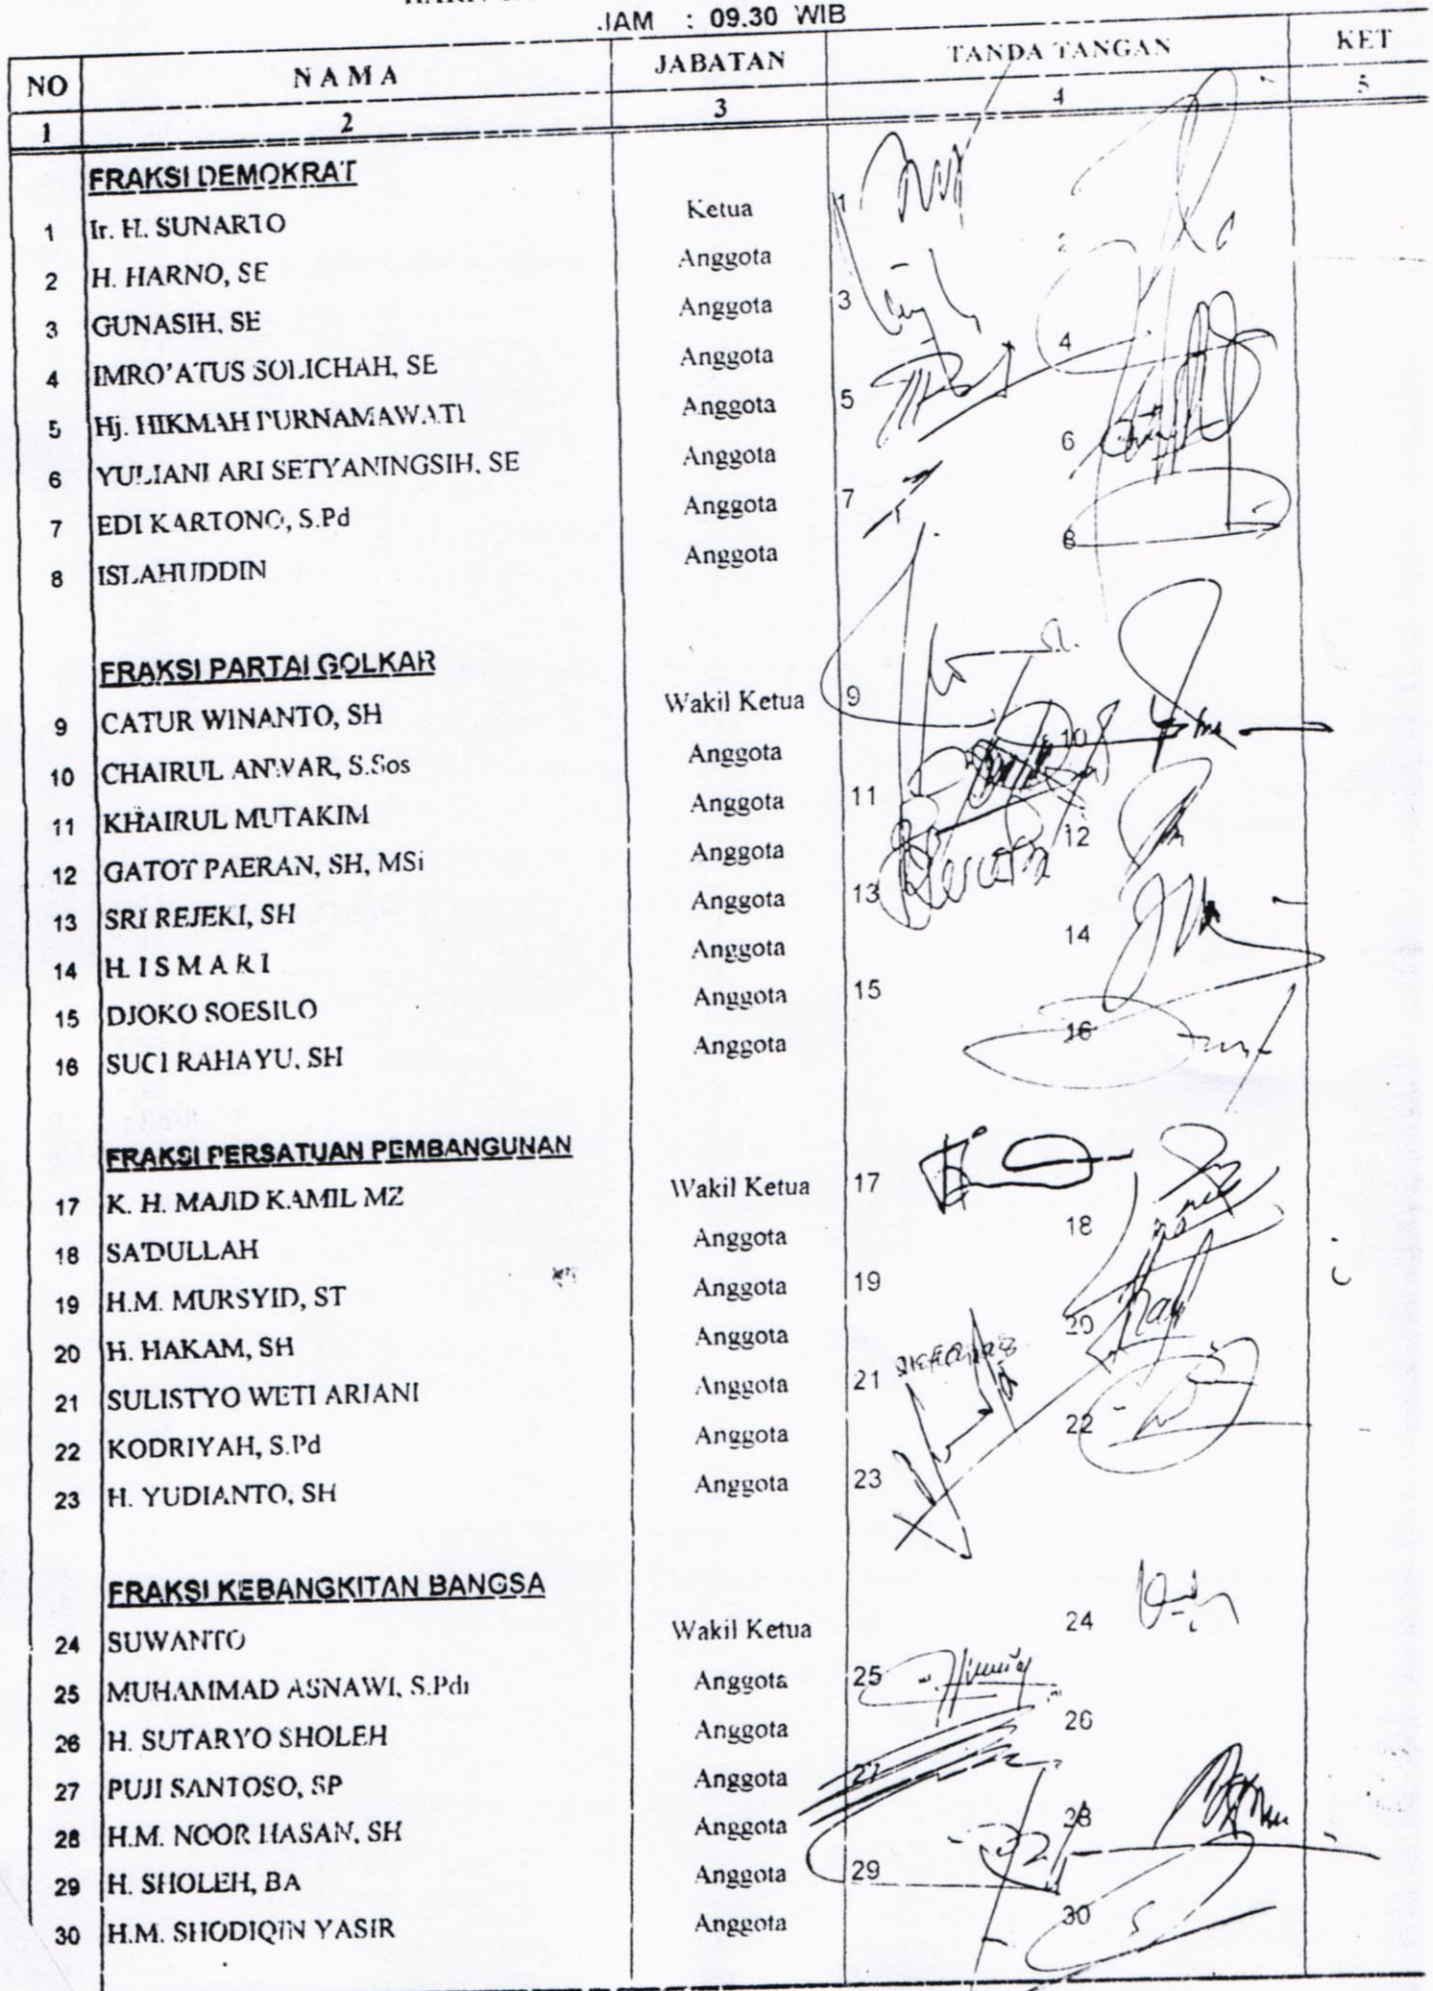 JAM : 09.30 WIB
NO NAMA JABATAN TANDA TANGAN KET
1 2 3 4 5
FRAKSI DEMOKRAT
1 Ir. H. SUNARTO Ketua 1
2 H. HARNO, SE Anggota 2
3 GUNASIH, SE Anggota 3
4 IMRO'ATUS SOLICHAH, SE Anggota 4
5 Hj. HIKMAH PURNAMAWATI Anggota 5
6 YULIANI ARI SETYANINGSIH, SE Anggota 6
7 EDI KARTONO, S.Pd Anggota 7
8 ISLAHUDDIN Anggota 8
FRAKSI PARTAI GOLKAR
9 CATUR WINANTO, SH Wakil Ketua 9
10 CHAIRUL ANWAR, S.Sos Anggota 10
11 KHAIRUL MUTAKIM Anggota 11
12 GATOT PAERAN, SH, MSi Anggota 12
13 SRI REJEKI, SH Anggota 13
14 H. I S M A R I Anggota 14
15 DJOKO SOESILO Anggota 15
16 SUCI RAHAYU, SH Anggota 16
FRAKSI PERSATUAN PEMBANGUNAN
17 K. H. MAJID KAMIL MZ Wakil Ketua 17
18 SA'DULLAH Anggota 18
19 H.M. MURSYID, ST Anggota 19
20 H. HAKAM, SH Anggota 20
21 SULISTYO WETI ARIANI Anggota 21
22 KODRIYAH, S.Pd Anggota 22
23 H. YUDIANTO, SH Anggota 23
FRAKSI KEBANGKITAN BANGSA
24 SUWANTO Wakil Ketua 24
25 MUHAMMAD ASNAWI, S.Pdi Anggota 25
26 H. SUTARYO SHOLEH Anggota 26
27 PUJI SANTOSO, SP Anggota 27
28 H.M. NOOR HASAN, SH Anggota 28
29 H. SHOLEH, BA Anggota 29
30 H.M. SHODIQIN YASIR Anggota 30